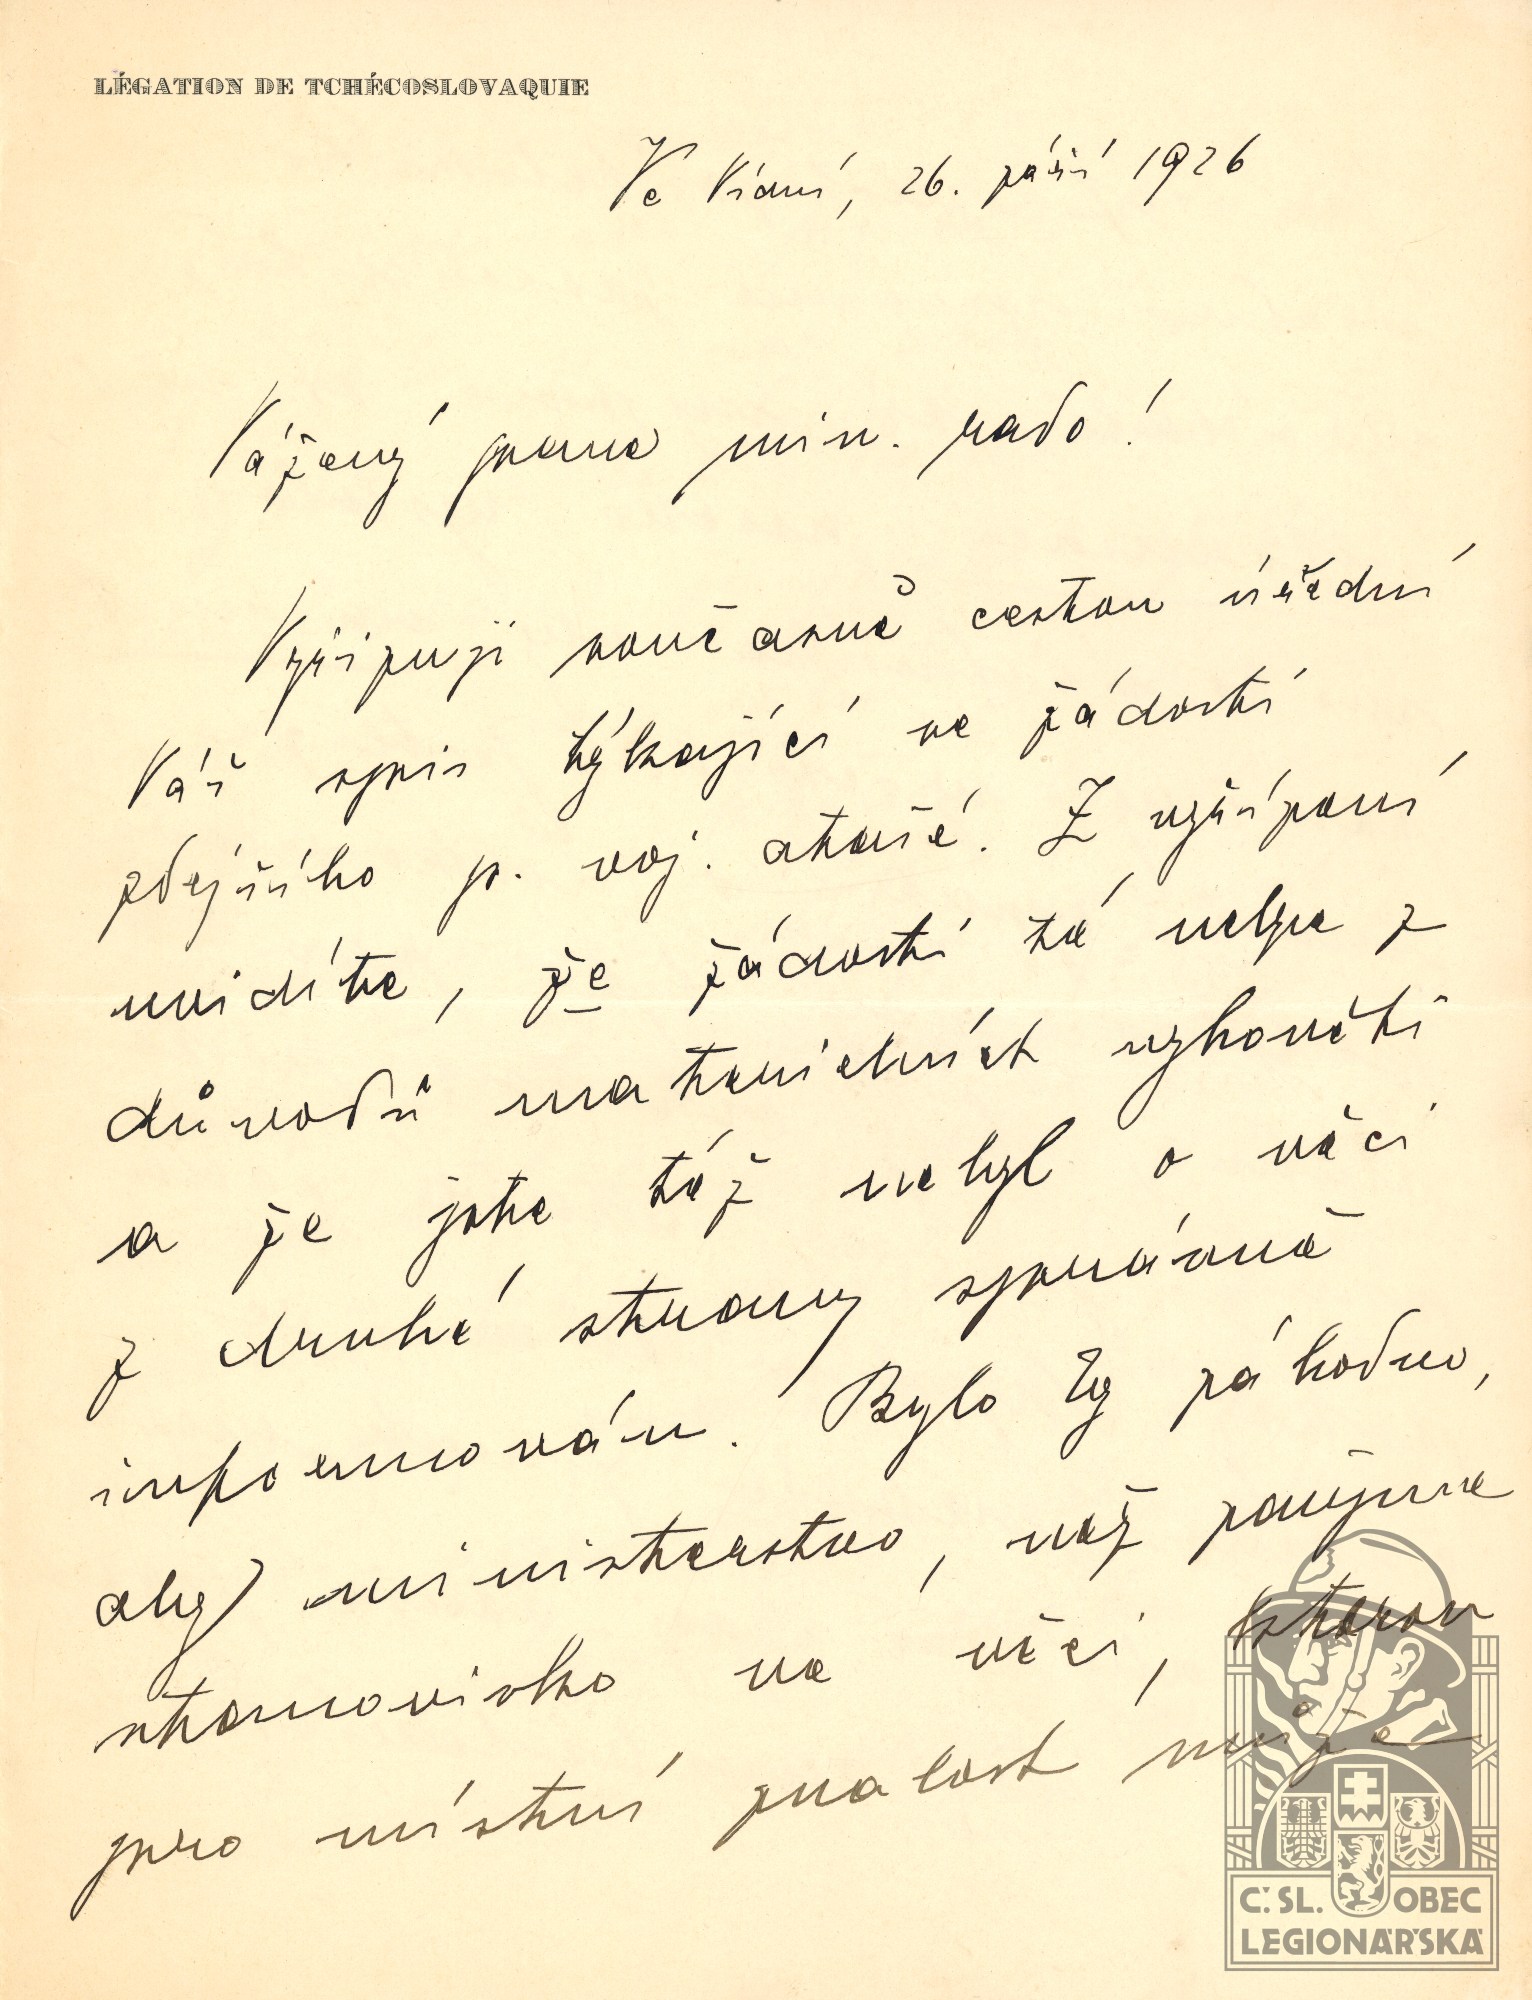 LÉGATION DE TCHÉCOSLOVAQUIE
Ve Vídni, 26. září 1926
Vážený pane min. rado!
Vyřizuji současně cestou úřední
Váš spis týkající se žádosti
zdejšího p. voj. atašé. Z vyřízení
uvidíte, že žádosti té nelze z
důvodů materielních vyhověti
a že jste též nebyl o věci
z druhé strany správně
informován. Bylo by záhodno,
aby ministerstvo, než zaujme
stanovisko ve věci, kterou
pro místní znalost může
Č. SL. OBEC
LEGIONÁŘSKÁ